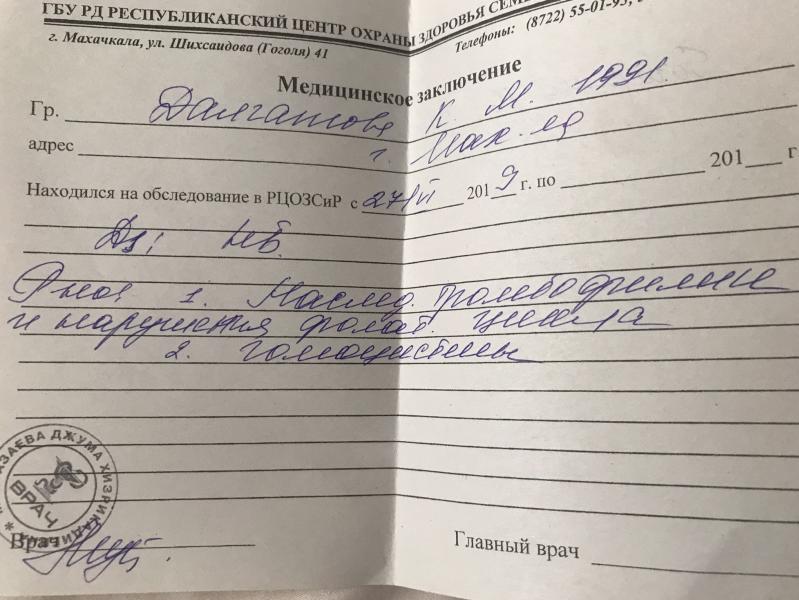 ГБУ РД РЕСПУБЛИКАНСКИЙ ЦЕНТР ОХРАНЫ ЗДОРОВЬЯ СЕМ
г. Махачкала, ул. Шихсаидова (Гоголя) 41
Телефоны: (8722) 55-01-95,
Медицинское заключение
Гр. Далгатова К. М. 1991
адрес г. Мах-ла
Находился на обследование в РЦОЗСиР с 27/VI 2019 г. по 201 г
Ds: НБ.
1. Наслед. тромбофилии
и нарушения фолат. цикла
2. гомоцистеин
АЗАЕВА ДЖУМА ХИЗРИ
ВРАЧ
Врач
Главный врач